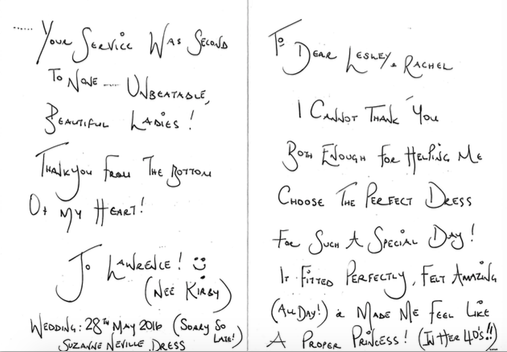 ...... Your Service Was Second
To None .... Unbeatable,
Beautiful Ladies!
Thankyou From The Bottom
Of My Heart!
Jo Lawrence! :)
(Neé Kirby)
Wedding: 28th May 2016 (Sorry So
Late!)
Suzanne Neville Dress
To
Dear Lesley & Rachel
I Cannot Thank You
Both Enough For Helping Me
Choose The Perfect Dress
For Such A Special Day!
It Fitted Perfectly, Felt Amazing
(All Day!) & Made Me Feel Like
A Proper Princess! (In Her 40's!!)